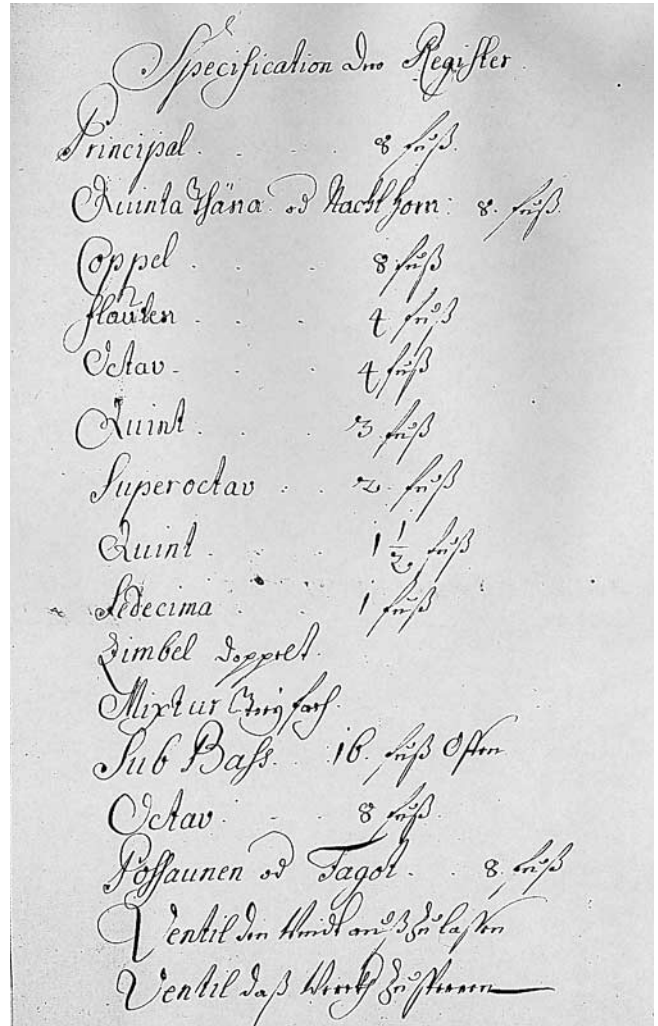 Specification der Register.
Principal. . . 8 fuß.
Quinta Thäna. od Nacht horn: 8. fuß.
Coppel . . . 8 fuß
flauten . . . 4 fuß
Octav . . . 4 fuß
Quint . . . 3 fuß
Superoctav . . 2. fuß
Quint . . . 1 1/2. fuß
Sedecima . . . 1 fuß
Zimbel doppelt.
Mixtur fach.
Sub Bass. . 16. fuß Offen
Octav . . . 8 fuß.
Possaunen od Fagot. . 8. fuß
Ventil den Windt auß Zu lassen
Ventil daß Werckh Zu sperren